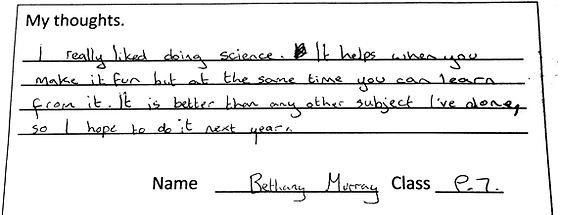 My thoughts.
I really liked doing science. It helps when you
make it fun but at the same time you can learn
from it. It is better than any other subject I've done,
so I hope to do it next year.
Name Bethany Murray Class P.7.